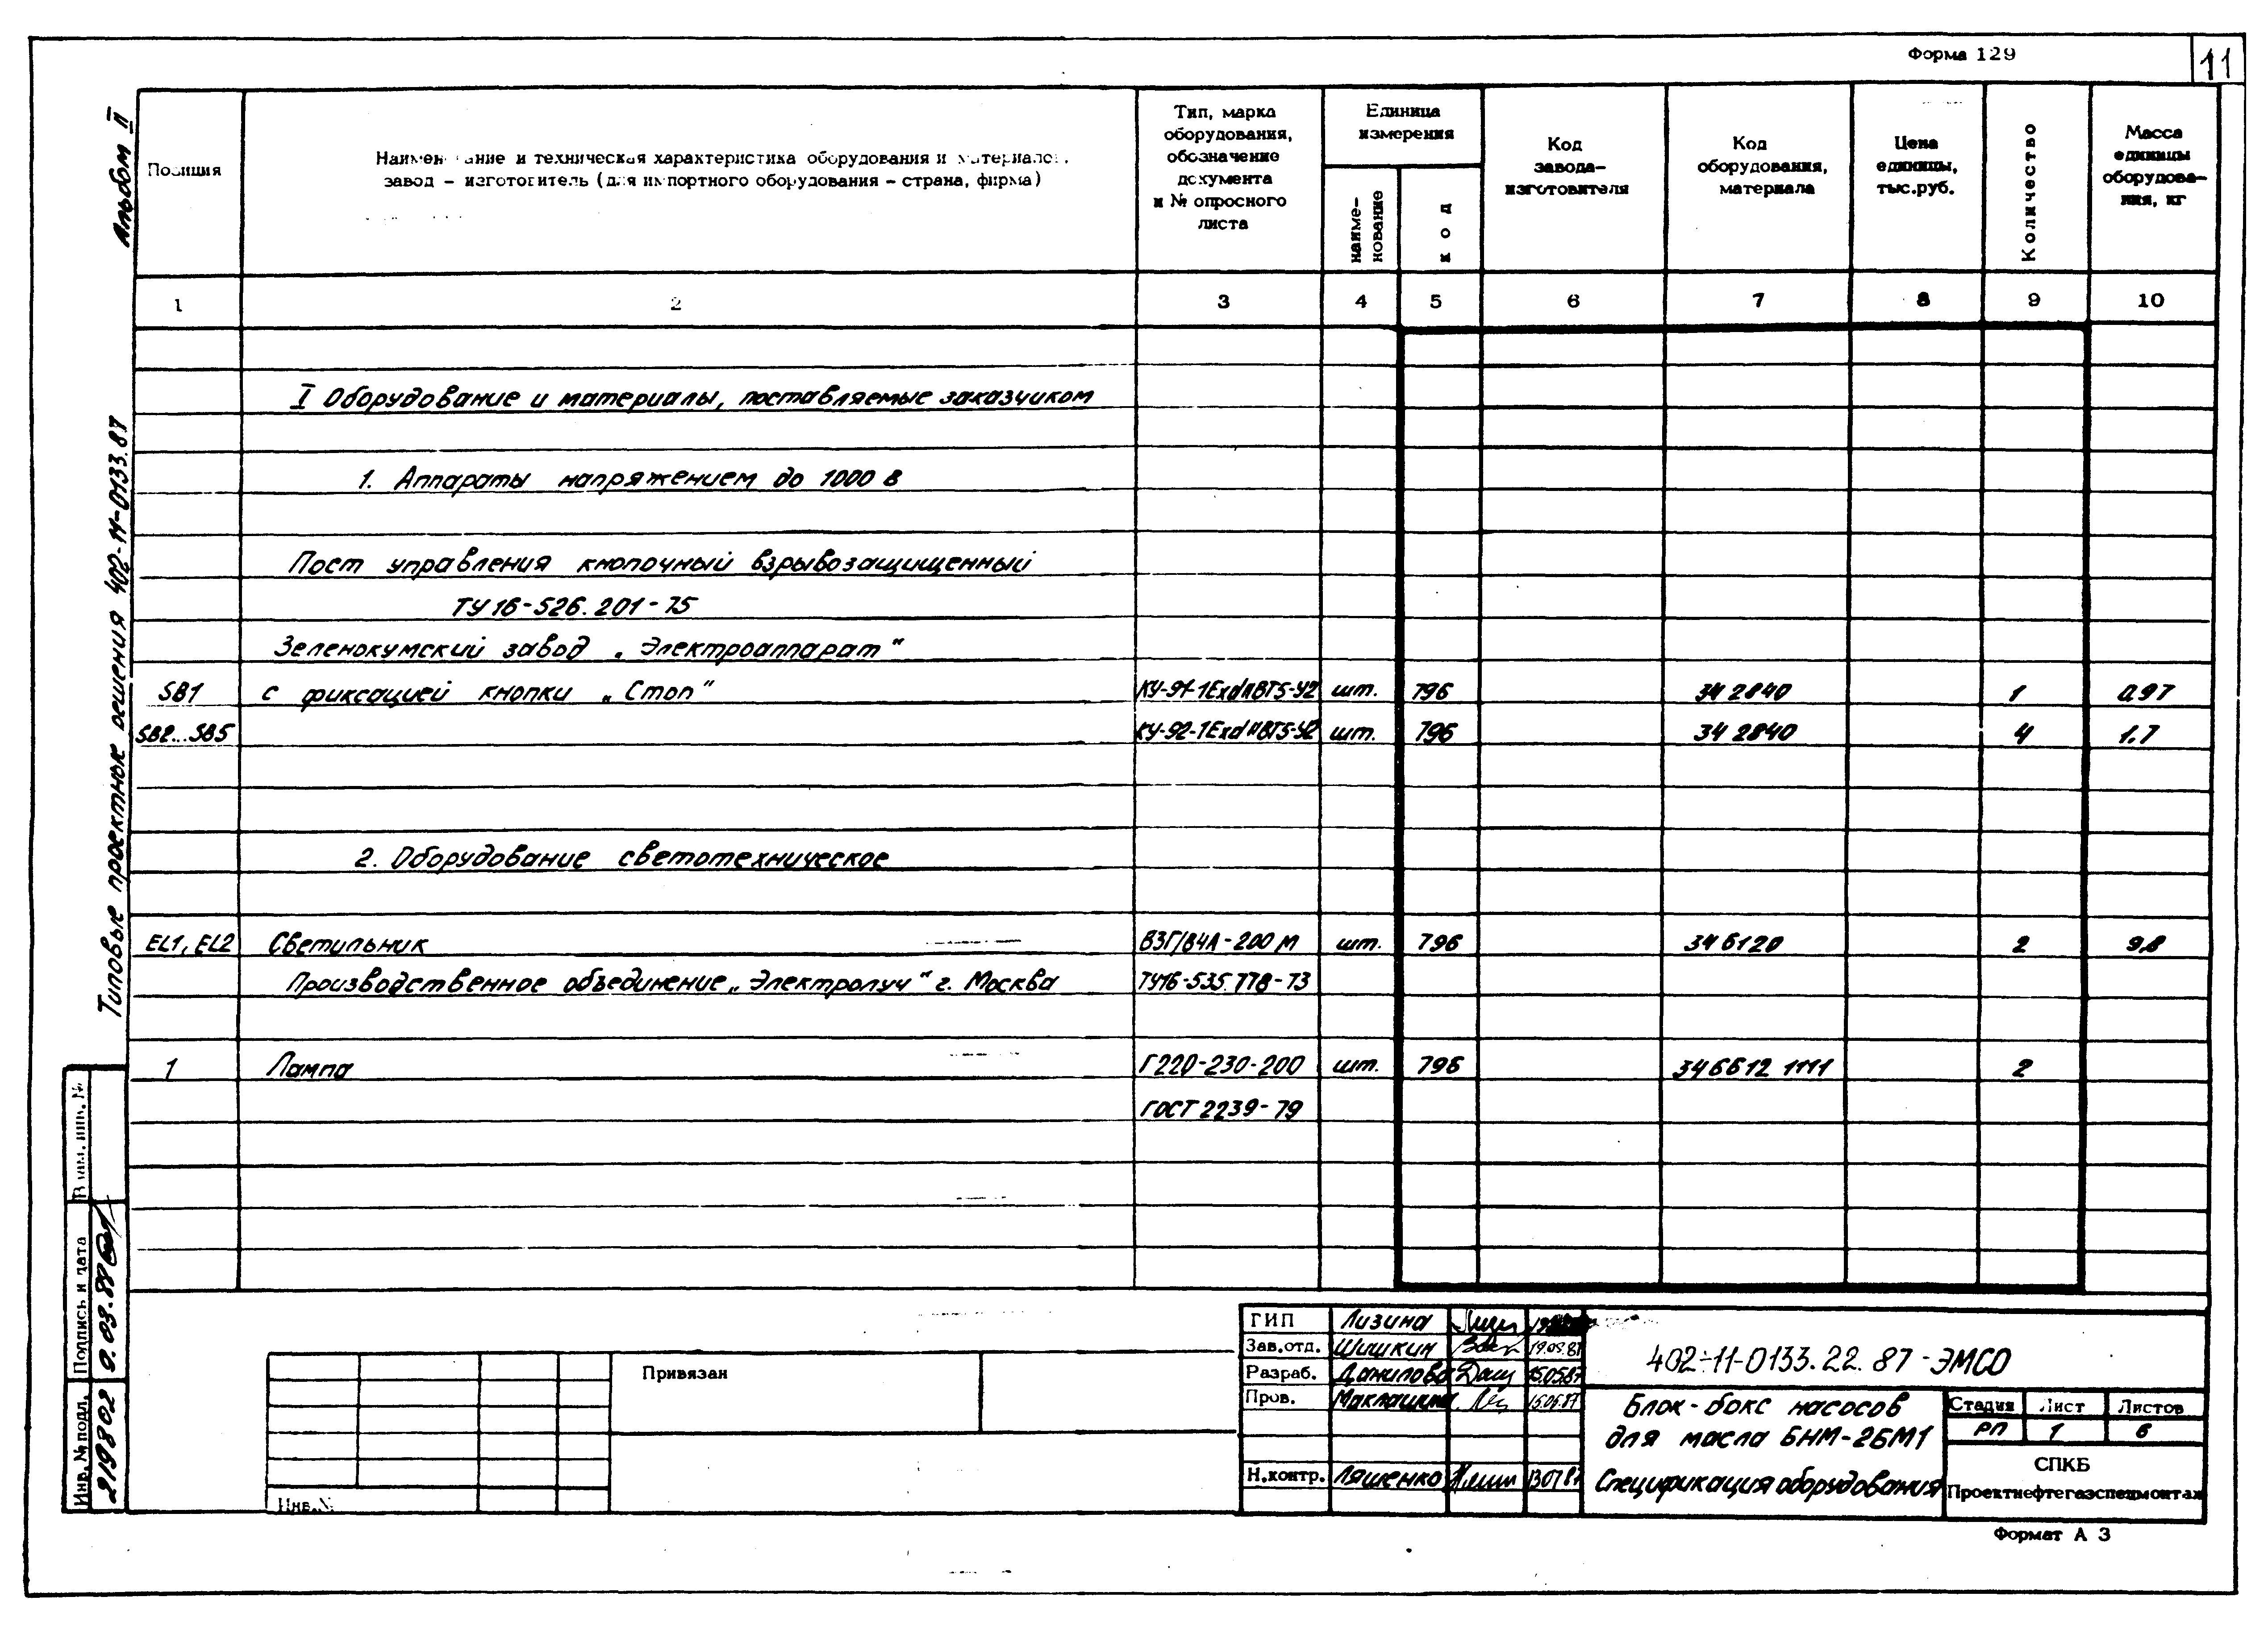 Форма 129
11
Альбом II
Типовые проектные решения 402-11-0133.87
Позиция
Наименование и техническая характеристика оборудования и материалов,
завод – изготовитель (для импортного оборудования – страна, фирма)
Тип, марка
оборудования,
обозначение
документа
и № опросного
листа
Единица
измерения
наиме-
нование
код
Код
завода-
изготовителя
Код
оборудования,
материала
Цена
единицы,
тыс.руб.
Количество
Масса
единицы
оборудова-
ния, кг
1 2 3 4 5 6 7 8 9 10
I Оборудование и материалы, поставляемые заказчиком
1. Аппараты напряжением до 1000 В
Пост управления кнопочный взрывозащищенный
ТУ16-526.201-75
Зеленокумский завод „Электроаппарат"
SB1 с фиксацией кнопки „Стоп" КУ-91-1ExdIIBT5-У2 шт. 796 34 2840 1 0.97
SB2...SB5 КУ-92-1ExdIIBT5-У2 шт. 796 34 2840 4 1.7
2. Оборудование светотехническое
EL1, EL2 Светильник ВЗГ/В4А-200М шт. 796 34 6120 2 9,8
Производственное объединение „Электролуч" г. Москва ТУ16-535.778-73
1 Лампа Г220-230-200 шт. 796 34 6612 1111 2
ГОСТ 2239-79
Взам. инв. №
Подпись и дата
Инв. № подл.
219802
Привязан
Инв.№
ГИП Лизина
Зав.отд. Шишкин
Разраб. Данилова 15.05.87
Пров. 15.05.87
Н.контр. Ляшенко 13.07.87
402-11-0133.22.87-ЭМСО
Блок-бокс насосов
для масла БНМ-2БМ1
Спецификация оборудования
Стадия Лист Листов
РП 1 6
СПКБ
Проектнефтегазспецмонтаж
Формат А 3